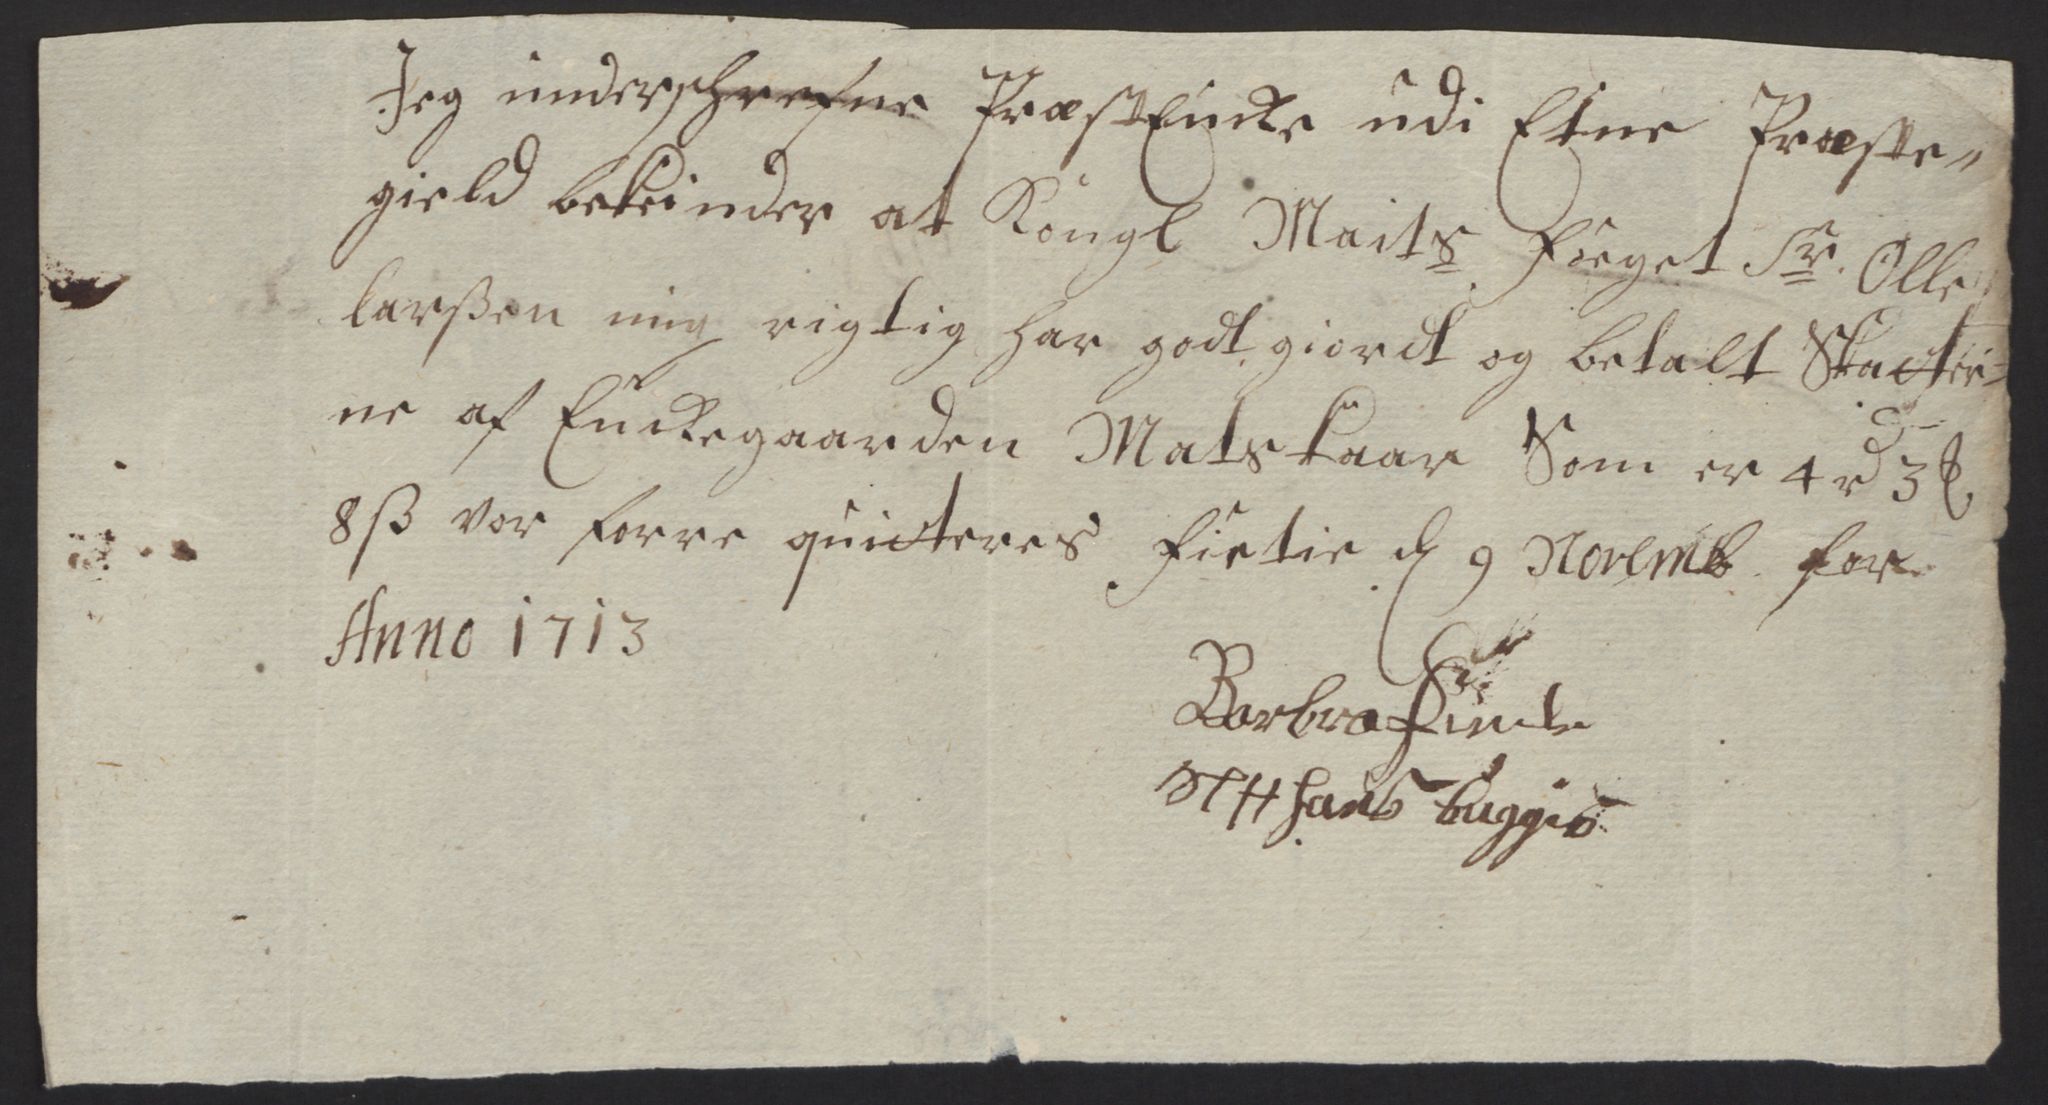 Jeg underschrefne PræstEncke udi Etne Præste„
gield bekiender at Kongl Maits foeget Sr. Olle
larßen mig rigtig har godt giordt og betalt Skatter=
ne af Enckegaarden Matskaar Som er 4 rd 3 ₰
8 ß vor forre quicteres fietie d 9 Novemb for
Anno 1713
Barbra
hans buggis